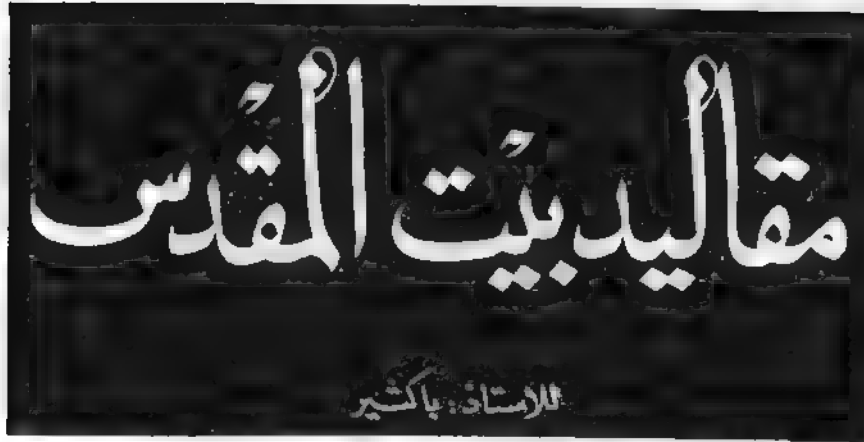 مقاليد بيت المقدس
للأستاذ: باكثير